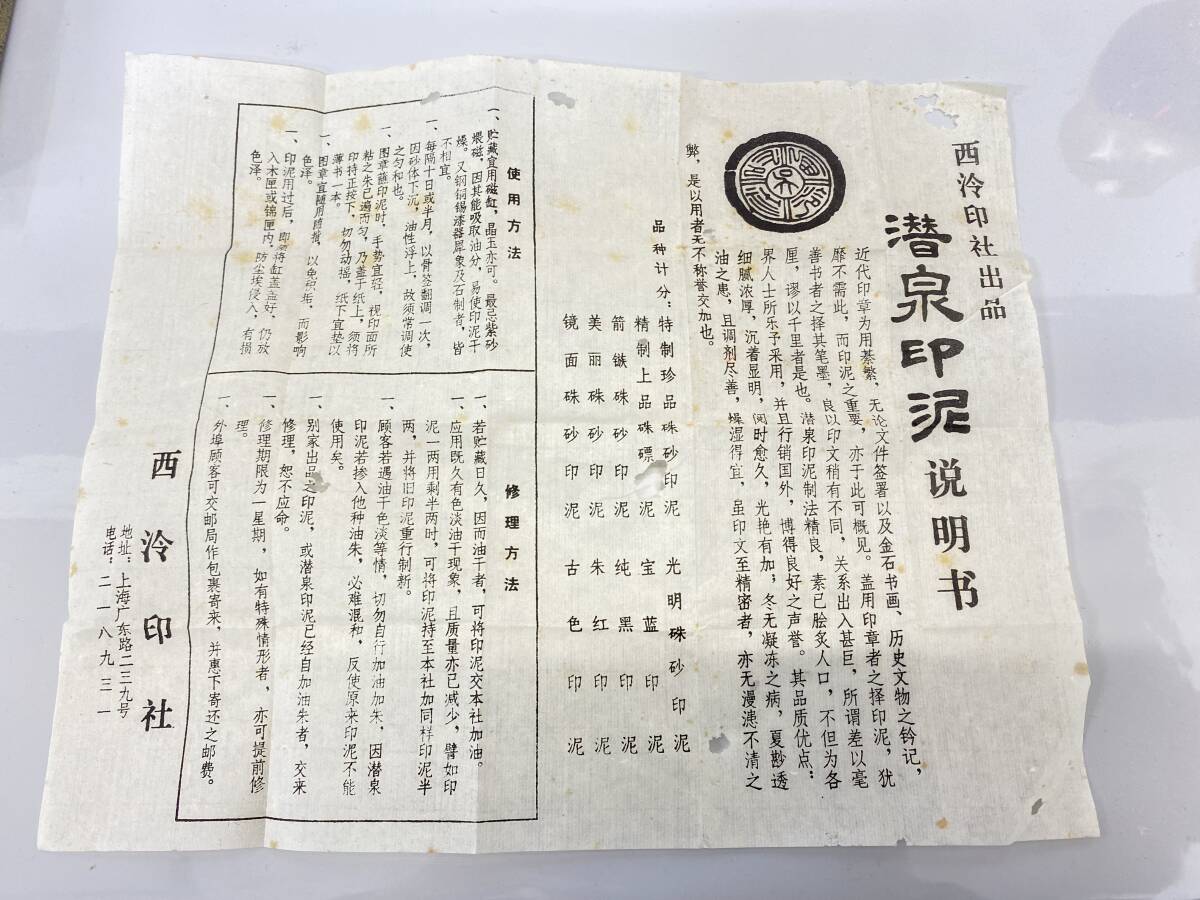 西泠印社出品
潜泉印泥说明书
近代印章为用綦繁，无论文件签署以及金石书画、历史文物之钤记，
靡不需此，而印泥之重要，亦于此可概见。盖用印章者之择印泥，犹
善书者之择其笔墨，良以印文稍有不同，关系出入甚巨，所谓差以毫
厘，谬以千里者是也。潜泉印泥制法精良，素已脍炙人口，不但为各
界人士所乐予采用，并且行销国外，博得良好之声誉。其品质优点：
细腻浓厚，沉着显明，阅时愈久，光艳有加，冬无凝冻之病，夏尠透
油之患，且调剂尽善，燥湿得宜，虽印文至精密者，亦无漫漶不清之
弊，是以用者无不称誉交加也。
品种计分：
特制珍品硃砂印泥 光明硃砂印泥
精制上品硃磦印泥 宝蓝印泥
箭镞硃砂印泥 纯黑印泥
美丽硃砂印泥 朱红印泥
镜面硃砂印泥 古色印泥
使用方法
一、贮藏宜用磁缸，晶玉亦可。最忌紫砂
煨磁，因其能吸取油分，易使印泥干
燥。又钢铜锡漆器犀象及石制者，皆
不相宜。
一、每隔十日或半月，以骨签翻调一次，
因砂体下沉，油性浮上，故须常调使
之匀和也。
一、图章蘸印泥时，手势宜轻，视印面所
粘之朱已遍而匀，乃盖于纸上，须将
印持正按下，切勿动摇，纸下宜垫以
薄书一本。
一、图章宜随用随拭，以免积垢，而影响
色泽。
一、印泥用过后，即将缸盖盖好，仍放
入木匣或锦匣内，防尘埃侵入，有损
色泽。
修理方法
一、若贮藏日久，因而油干者，可将印泥交本社加油。
一、应用既久有色淡油干现象，且质量亦已减少，譬如印
泥一两用剩半两时，可将印泥持至本社加同样印泥半
两，并将旧印泥重行制新。
一、顾客若遇油干色淡等情，切勿自行加油加朱，因潜泉
印泥若掺入他种油朱，必难混和，反使原来印泥不能
使用矣。
一、别家出品之印泥，或潜泉印泥已经自加油朱者，交来
修理，恕不应命。
一、修理期限为一星期，如有特殊情形者，亦可提前修
理。
一、外埠顾客可交邮局作包裹寄来，并惠下寄还之邮费。
西泠印社
地址：上海广东路二三九号
电话：二一八九三一